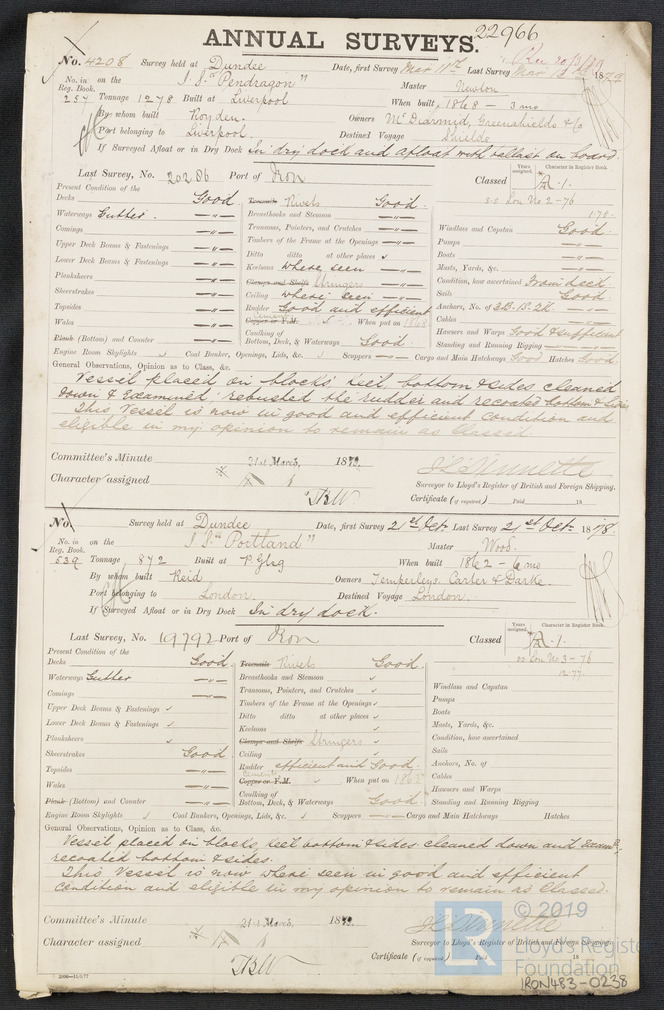 22966
ANNUAL SURVEYS.
No. 4208 Survey held at Dundee Date, first Survey Mar 11th Last Survey Mar 1879
No. in Reg. Book. 257 on the I.S. "Pendragon" Master Newton
Tonnage 1278 Built at Liverpool When built 1868 - 3 mo
By whom built Royden. Owners McDiarmid, Greenshields & Co
Port belonging to Liverpool Destined Voyage Shields
If Surveyed Afloat or in Dry Dock In dry dock and afloat with ballast on board.
Last Survey, No. 20286 Port of Iron Classed Years assigned. Character in Register Book. A.1.
s.s. Lon No 2-76
Present Condition of the
Decks Good Treenails Rivets Good.
Waterways Gutter. —"— Breasthooks and Stemson —"— Windlass and Capstan Good
Comings —"— Transoms, Pointers, and Crutches —"— Pumps —"—
Upper Deck Beams & Fastenings —"— Timbers of the Frame at the Openings —"— Boats —"—
Lower Deck Beams & Fastenings —"— Ditto ditto at other places ✓ Masts, Yards, &c. —"—
Plankshears —"— Keelsons where seen —"— Condition, how ascertained From deck
Sheerstrakes —"— Clamps and Shelfs Stringers —"— Sails Good
Topsides —"— Ceiling where seen —"— Anchors, No. of 3B.1S.2K.
Wales —"— Rudder Good and efficient Cables —"—
Copper or Y.M. When put on 1868
Plank (Bottom) and Counter —"— Caulking of Bottom, Deck, & Waterways Good Hawsers and Warps Good & sufficient
Standing and Running Rigging —"—
Engine Room Skylights ✓ Coal Bunker, Openings, Lids, &c. ✓ Scuppers —"— Cargo and Main Hatchways Good Hatches Good
General Observations, Opinion as to Class, &c.
Vessel placed on blocks keel, bottom & sides cleaned
down & Examined, rebushed the rudder and recoated bottom & sides
This Vessel is now in good and efficient condition and
eligible in my opinion to remain as Classed
Committee's Minute 21st March, 1879.
Character assigned
Surveyor to Lloyd's Register of British and Foreign Shipping.
Certificate (if required) Paid 18
No. Survey held at Dundee Date, first Survey 21st Oct. Last Survey 21st Oct. 1878.
No. in Reg. Book. 539 on the I.S. "Portland" Master Wood.
Tonnage 872 Built at P.Glsg When built 1862 - 6 mo
By whom built Reid Owners Temperleys. Carter & Darke.
Port belonging to London. Destined Voyage London.
If Surveyed Afloat or in Dry Dock In dry dock.
Last Survey, No. 19792 Port of Iron Classed Years assigned. Character in Register Book. A.1.
ss Lon No 3-76
12.77.
Present Condition of the
Decks Good. Treenails Rivets Good.
Waterways Gutter —"— Breasthooks and Stemson ✓ Windlass and Capstan
Comings —"— Transoms, Pointers, and Crutches ✓ Pumps
Upper Deck Beams & Fastenings ✓ Timbers of the Frame at the Openings ✓ Boats
Lower Deck Beams & Fastenings ✓ Ditto ditto at other places ✓ Masts, Yards, &c.
Plankshears ✓ Keelsons ✓ Condition, how ascertained
Sheerstrakes Good Clamps and Shelfs Stringers ✓ Sails
Topsides —"— Ceiling ✓ Anchors, No. of
Wales —"— Rudder efficient and Good. Cables
Cement Copper or Y.M. ✓ When put on
Plank (Bottom) and Counter —"— Caulking of Bottom, Deck, & Waterways Good Hawsers and Warps
Standing and Running Rigging
Engine Room Skylights ✓ Coal Bunkers, Openings, Lids, &c. ✓ Scuppers —"— Cargo and Main Hatchways Hatches
General Observations, Opinion as to Class, &c.
Vessel placed on blocks, keel bottom & sides cleaned down and Examd,
recoated bottom & sides.
This Vessel is now where seen in good and efficient
condition and eligible in my opinion to remain as Classed.
Committee's Minute 21st March, 1879.
Character assigned
Surveyor to Lloyd's Register of British and Foreign Shipping.
Certificate (if required) Paid 18
2000—11/1/77
© 2019
LR Lloyd's Register
Foundation
IRON483-0238